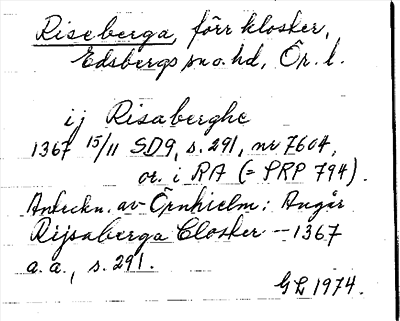 Riseberga, förr kloster,
Edsbergs sn o. hd, Ör. l.
ij Risaberghe
1367 15/11 SD9, s. 291, nr 7604,
or. i RA (= PRP 794).
Anteckn. av Örnhielm: Angår
Rijsaberga Closter -- 1367
a.a., s. 291.
GL 1974.